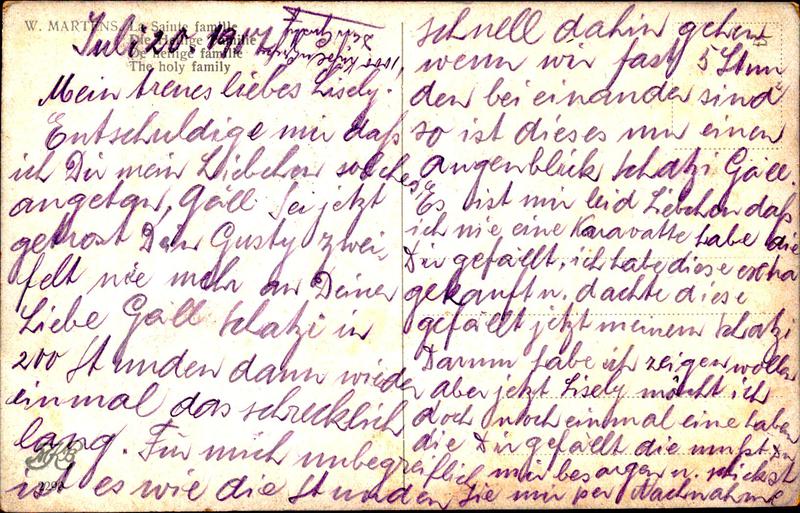 W. MARTENS. La Sainte famille
Die heilige Familie
De heilige familie
The holy family
Juli 20. 19
1000
Mein treues liebes Lisely.
Entschuldige mir daß
ich Dir mein Liebchen solches
angetan, Gäll Sei jetzt
getrost Dein Gusty zwei-
felt nie mehr an Deiner
Liebe Gäll Schatzi in
200 Stunden dann wieder
einmal das schrecklich
lang. Für mich unbegreiflich
ist es wie die Stunden
2292
schnell dahin gehen
wenn wir fast 5 Stun
den bei einander sind
so ist dieses nur einen
augenblick Schatzi Gäll.
Es ist mir leid Liebchen daß
ich nie eine Karavatte habe die
Dir gefällt, ich habe diese extra
gekauft u. dachte diese
gefällt jetzt meinem Schatzi
Darum habe ich zeigen wollen
aber jetzt Lisely möcht ich
doch noch einmal eine haben
die Dir gefällt die mußt Du
mir besorgen u. schickst
Sie mir per Nachnahme